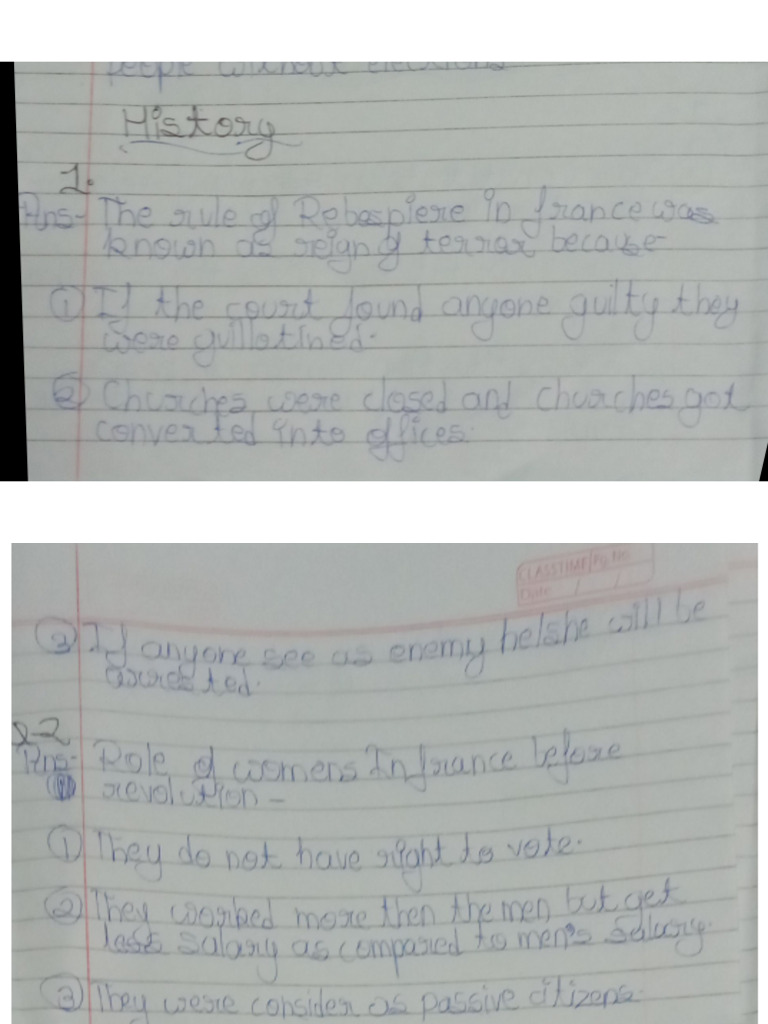 people without elections
History
1.
Ans- The rule of Robespiere in france was
known as reign of terror because
① If the court found anyone guilty they
were guillotined.
② Churches were closed and churches got
converted into offices.
CLASSTIME Pg. No.
Date / /
③ If anyone see as enemy he/she will be
arrested.
Q-2
Ans- Role of womens In france before
revolution -
① They do not have right to vote.
② They worked more then the men but get
less salary as compared to men's salary.
③ They were consider as passive citizens.